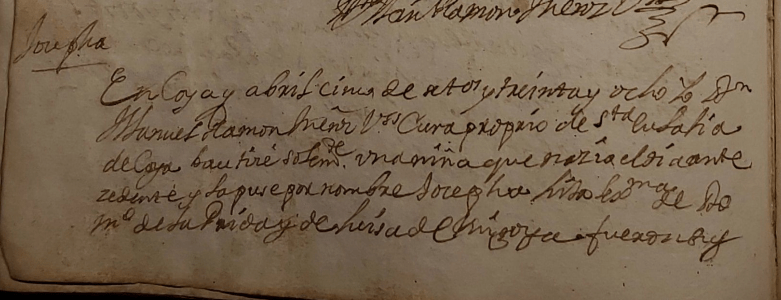 Man. Ramon Menz Vs
Josepha
En Coya y abril cinco de setos y treinta y ocho Yo Dn
Manuel Ramon Menz Vs Cura proprio de Sta Eulalia
de Coya bautizé solemde. una niña que nazia el dia ante
zedente, y la puse por nombre Josepha hija lexma de Do
mo de la Prida y de Luisa de fueron sus